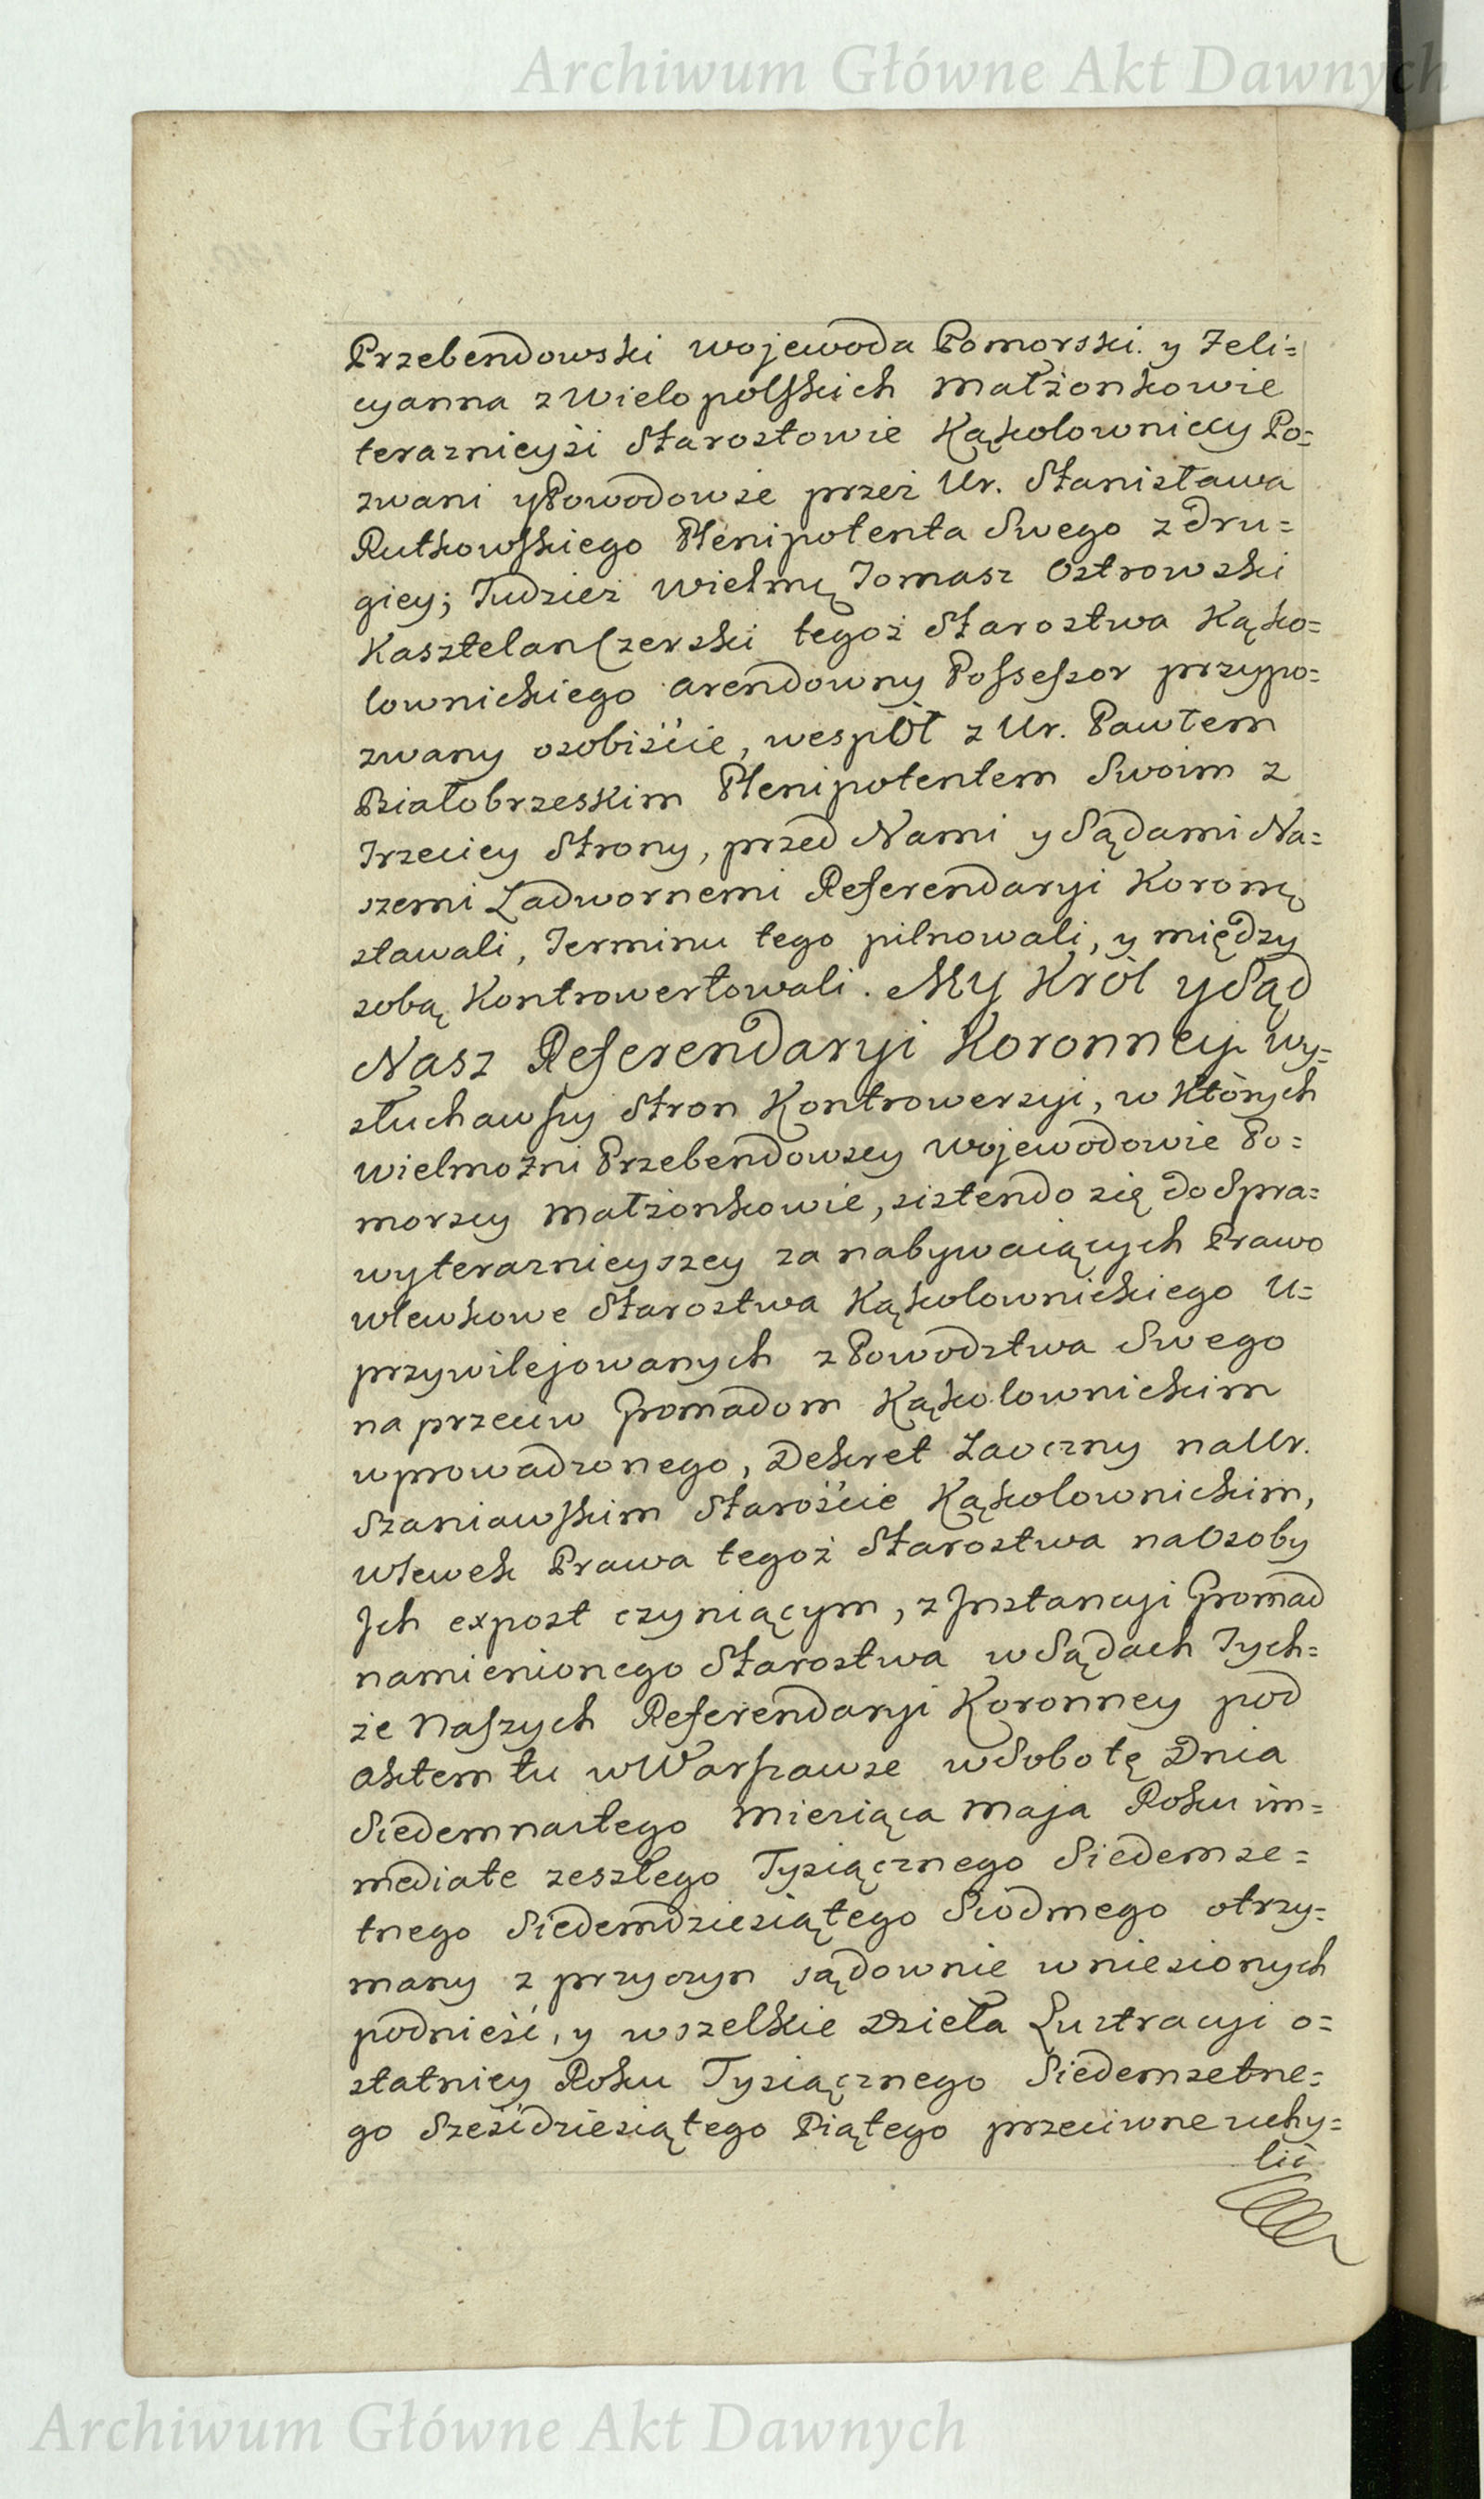 Archiwum Główne Akt Dawnych
Przebendowski wojewoda Pomorski y Feli=
cyanna z Wielopolskich Małżonkowie
teraznieysi Starostowie Kąkolowniccy Po=
zwani y Powodowie przez Ur. Stanisława
Rutkowskiego Plenipotenta Swego z dru=
giey; Tudzież Wielmę Tomasz Ostrowski
Kasztelan Czerski tegoż Starostwa Kąko=
lownickiego arendowny Possessor przypo=
zwany osobiście, wespół z Ur. Pawłem
Białobrzeskim Plenipotentem Swoim z
Trzeciey Strony, przed Nami y Sądami Na=
szemi Zadwornemi Referendaryi Koronę
stawali, Terminu tego pilnowali, y między
sobą Kontrowertowali. My Król y Sąd
Nasz Referendaryi Koronney wy=
słuchawszy Stron Kontrowersyi, w których
Wielmożni Przebendowscy Wojewodowie Po=
morscy Małżonkowie, sistendo się do Spra=
wy teraznieyszey za nabywaiących Prawo
wlewkowe Starostwa Kąkolownickiego U=
przywilejowanych z Powodztwa Swego
na przeciw Gromadom Kąkolownickim
wprowadzonego, Dekret Zaoczny na Ur.
Szaniawskim Staroście Kąkolownickim,
wlewek Prawa tegoż Starostwa na Osoby
Ich expost czyniącym, z Instancyi Gromad
namienionego Starostwa w Sądach Tych=
że Naszych Referendaryi Koronney pod
aktem tu w Warszawie w Sobotę Dnia
Siedemnastego Miesiąca Maja Roku im=
mediate zeszłego Tysiącznego Siedemse=
tnego Siedemdziesiątego Siodmego otrzy=
many z przyczyn sądownie wniesionych
podnieść, y wszelkie Dzieła Lustracyi o=
statniey Roku Tysiącznego Siedemsetne=
go Sześćdziesiątego Piątego przeciwne uchy=
lić
Archiwum Główne Akt Dawnych